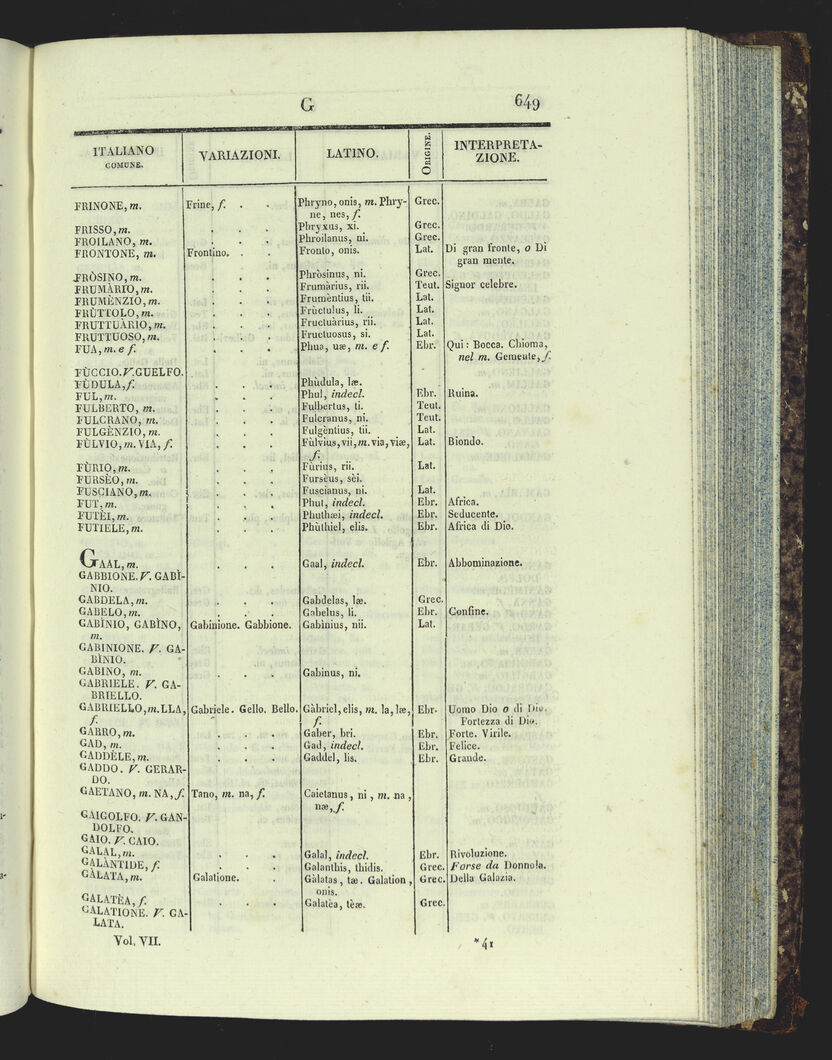 G 649
ITALIANO COMUNE. VARIAZIONI. LATINO. ORIGINE. INTERPRETA-
ZIONE.
FRINONE, m. Frine, f. . . Phryno, onis, m. Phry- Grec.
ne, nes, f.
FRISSO, m. . . . Phryxus, xi. Grec.
FROILANO, m. . . . Phroilanus, ni. Grec.
FRONTONE, m. Frontino. . . Fronto, onis. Lat. Di gran fronte, o Di
gran mente.
FRÒSINO, m. . . . Phròsinus, ni. Grec.
FRUMÀRIO, m. . . . Frumàrius, rii. Teut. Signor celebre.
FRUMÈNZIO, m. . . . Frumèntius, tii. Lat.
FRÙTTOLO, m. . . . Frùctulus, li. Lat.
FRUTTUÀRIO, m. . . . Fructuàrius, rii. Lat.
FRUTTUOSO, m. . . . Fructuosus, si. Lat.
FUA, m. e f. . . . Phua, uæ, m. e f. Ebr. Qui: Bocca. Chioma,
nel m. Gemente, f.
FÙCCIO. V. GUELFO.
FÙDULA, f. . . . Phùdula, læ.
FUL, m. . . . Phul, indecl. Ebr. Ruina.
FULBERTO, m. . . . Fulbertus, ti. Teut.
FULCRANO, m. . . . Fulcranus, ni. Teut.
FULGÈNZIO, m. . . . Fulgèntius, tii. Lat.
FÙLVIO, m. VIA, f. . . . Fùlvius, vii, m. via, viæ, Lat. Biondo.
f.
FÙRIO, m. . . . Fùrius, rii. Lat.
FURSÈO, m. . . . Fursèus, sèi.
FUSCIANO, m. . . . Fuscianus, ni. Lat.
FUT, m. . . . Phut, indecl. Ebr. Africa.
FUTÈI, m. . . . Phuthæi, indecl. Ebr. Seducente.
FUTIELE, m. . . . Phùthiel, elis. Ebr. Africa di Dio.
GAAL, m. . . . Gaal, indecl. Ebr. Abbominazione.
GABBIONE. V. GABÌ-
NIO.
GABDELA, m. . . . Gabdelas, læ. Grec.
GABELO, m. . . . Gabelus, li. Ebr. Confine.
GABÌNIO, GABÌNO, Gabinione. Gabbione. Gabìnius, nii. Lat.
m.
GABINIONE. V. GA-
BÌNIO.
GABINO, m. . . . Gabinus, ni.
GABRIELE. V. GA-
BRIELLO.
GABRIELLO, m. LLA, Gabriele. Gello. Bello. Gàbriel, elis, m. la, læ, Ebr. Uomo Dio o di Dio.
f. f. Fortezza di Dio.
GABRO, m. . . . Gaber, bri. Ebr. Forte. Virile.
GAD, m. . . . Gad, indecl. Ebr. Felice.
GADDÈLE, m. . . . Gaddel, lis. Ebr. Grande.
GADDO. V. GERAR-
DO.
GAETANO, m. NA, f. Tano, m. na, f. Caietanus, ni, m. na,
næ, f.
GAIGOLFO. V. GAN-
DOLFO.
GAIO. V. CAIO.
GALAL, m. . . . Galal, indecl. Ebr. Rivoluzione.
GALÀNTIDE, f. . . . Galanthis, thidis. Grec. Forse da Donnola.
GÀLATA, m. Galatione. . Gàlatas, tæ. Galation, Grec. Della Galazia.
onis.
GALATÈA, f. . . . Galatèa, tèæ. Grec.
GALATIONE. V. GA-
LATA.
Vol. VII. *41